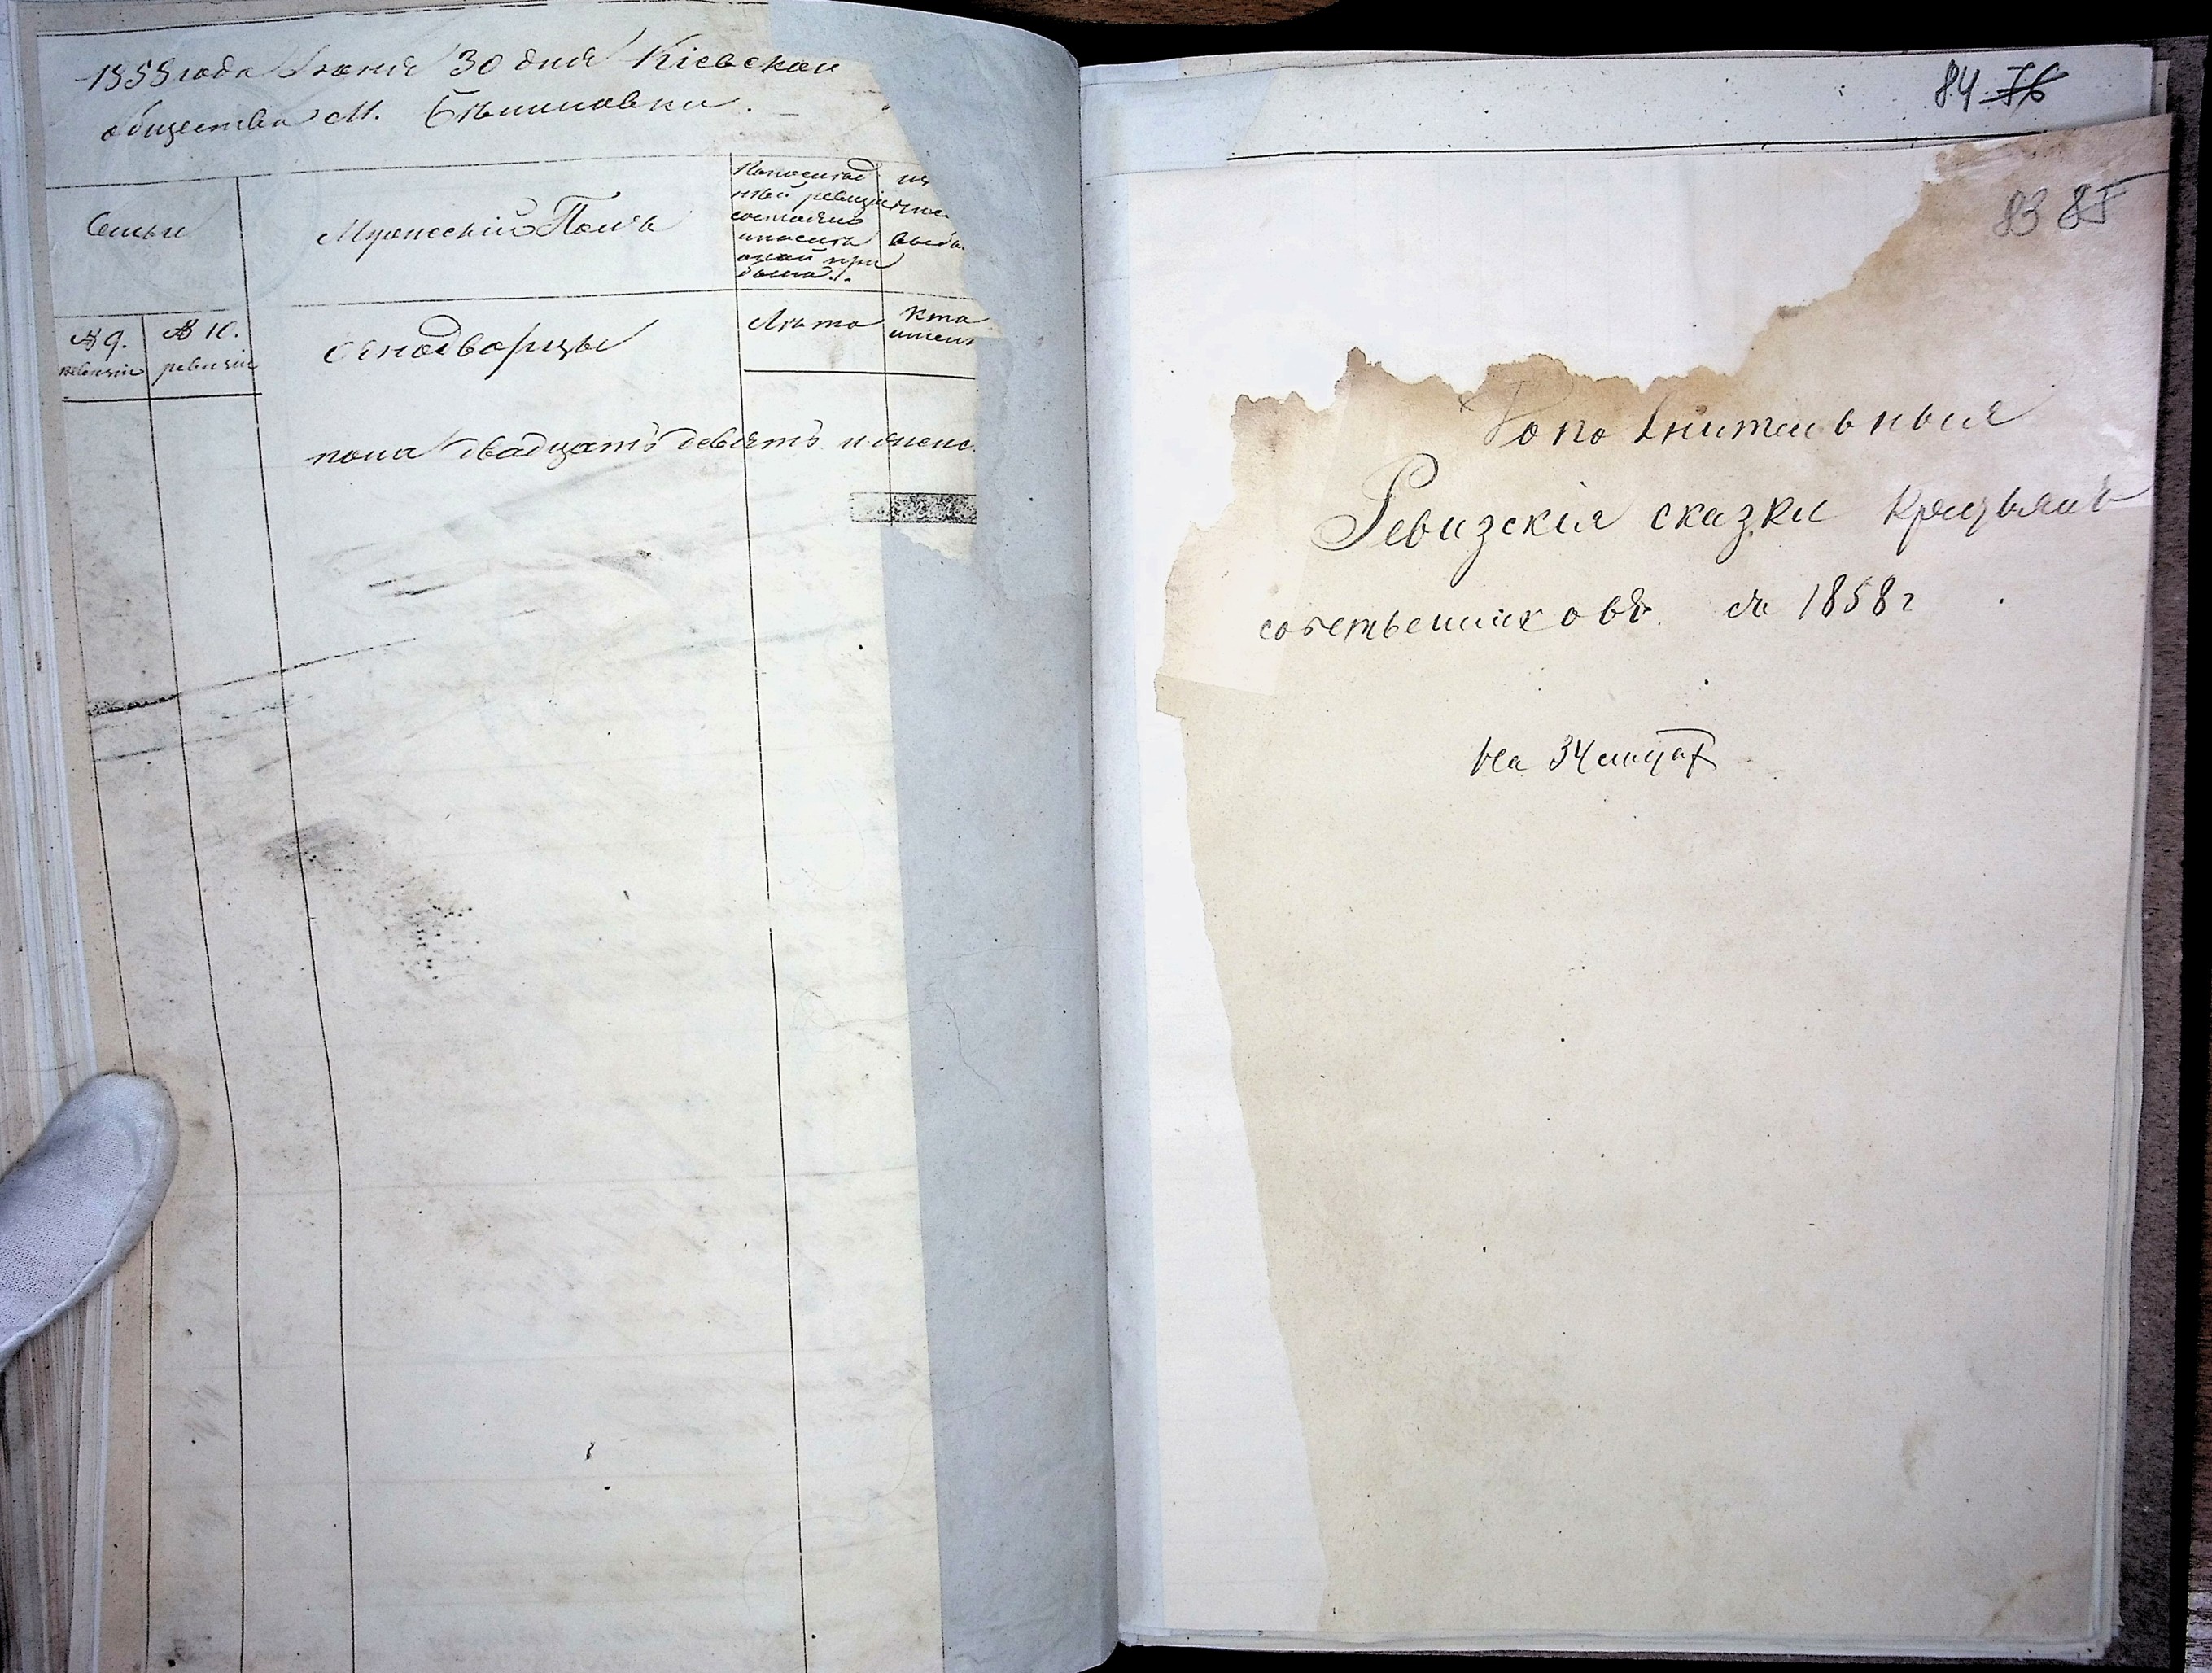 1858 года Июня 30 дня Кіевской
общества М. Бѣлиловки.
Семьи
Мужескій Полъ
По послѣд
ней ревизіи
состояло
и послѣ
оной при
было.
из
выбы
№ 9. ревизіи
№ 10. ревизіи
Однодворцы
Лѣта
Кто
имен
пола двадцать девять и женс
84 76
83 85
Дополнительныя
Ревизскія сказки крестьянъ
собственниковъ за 1858 г
На 34 листах